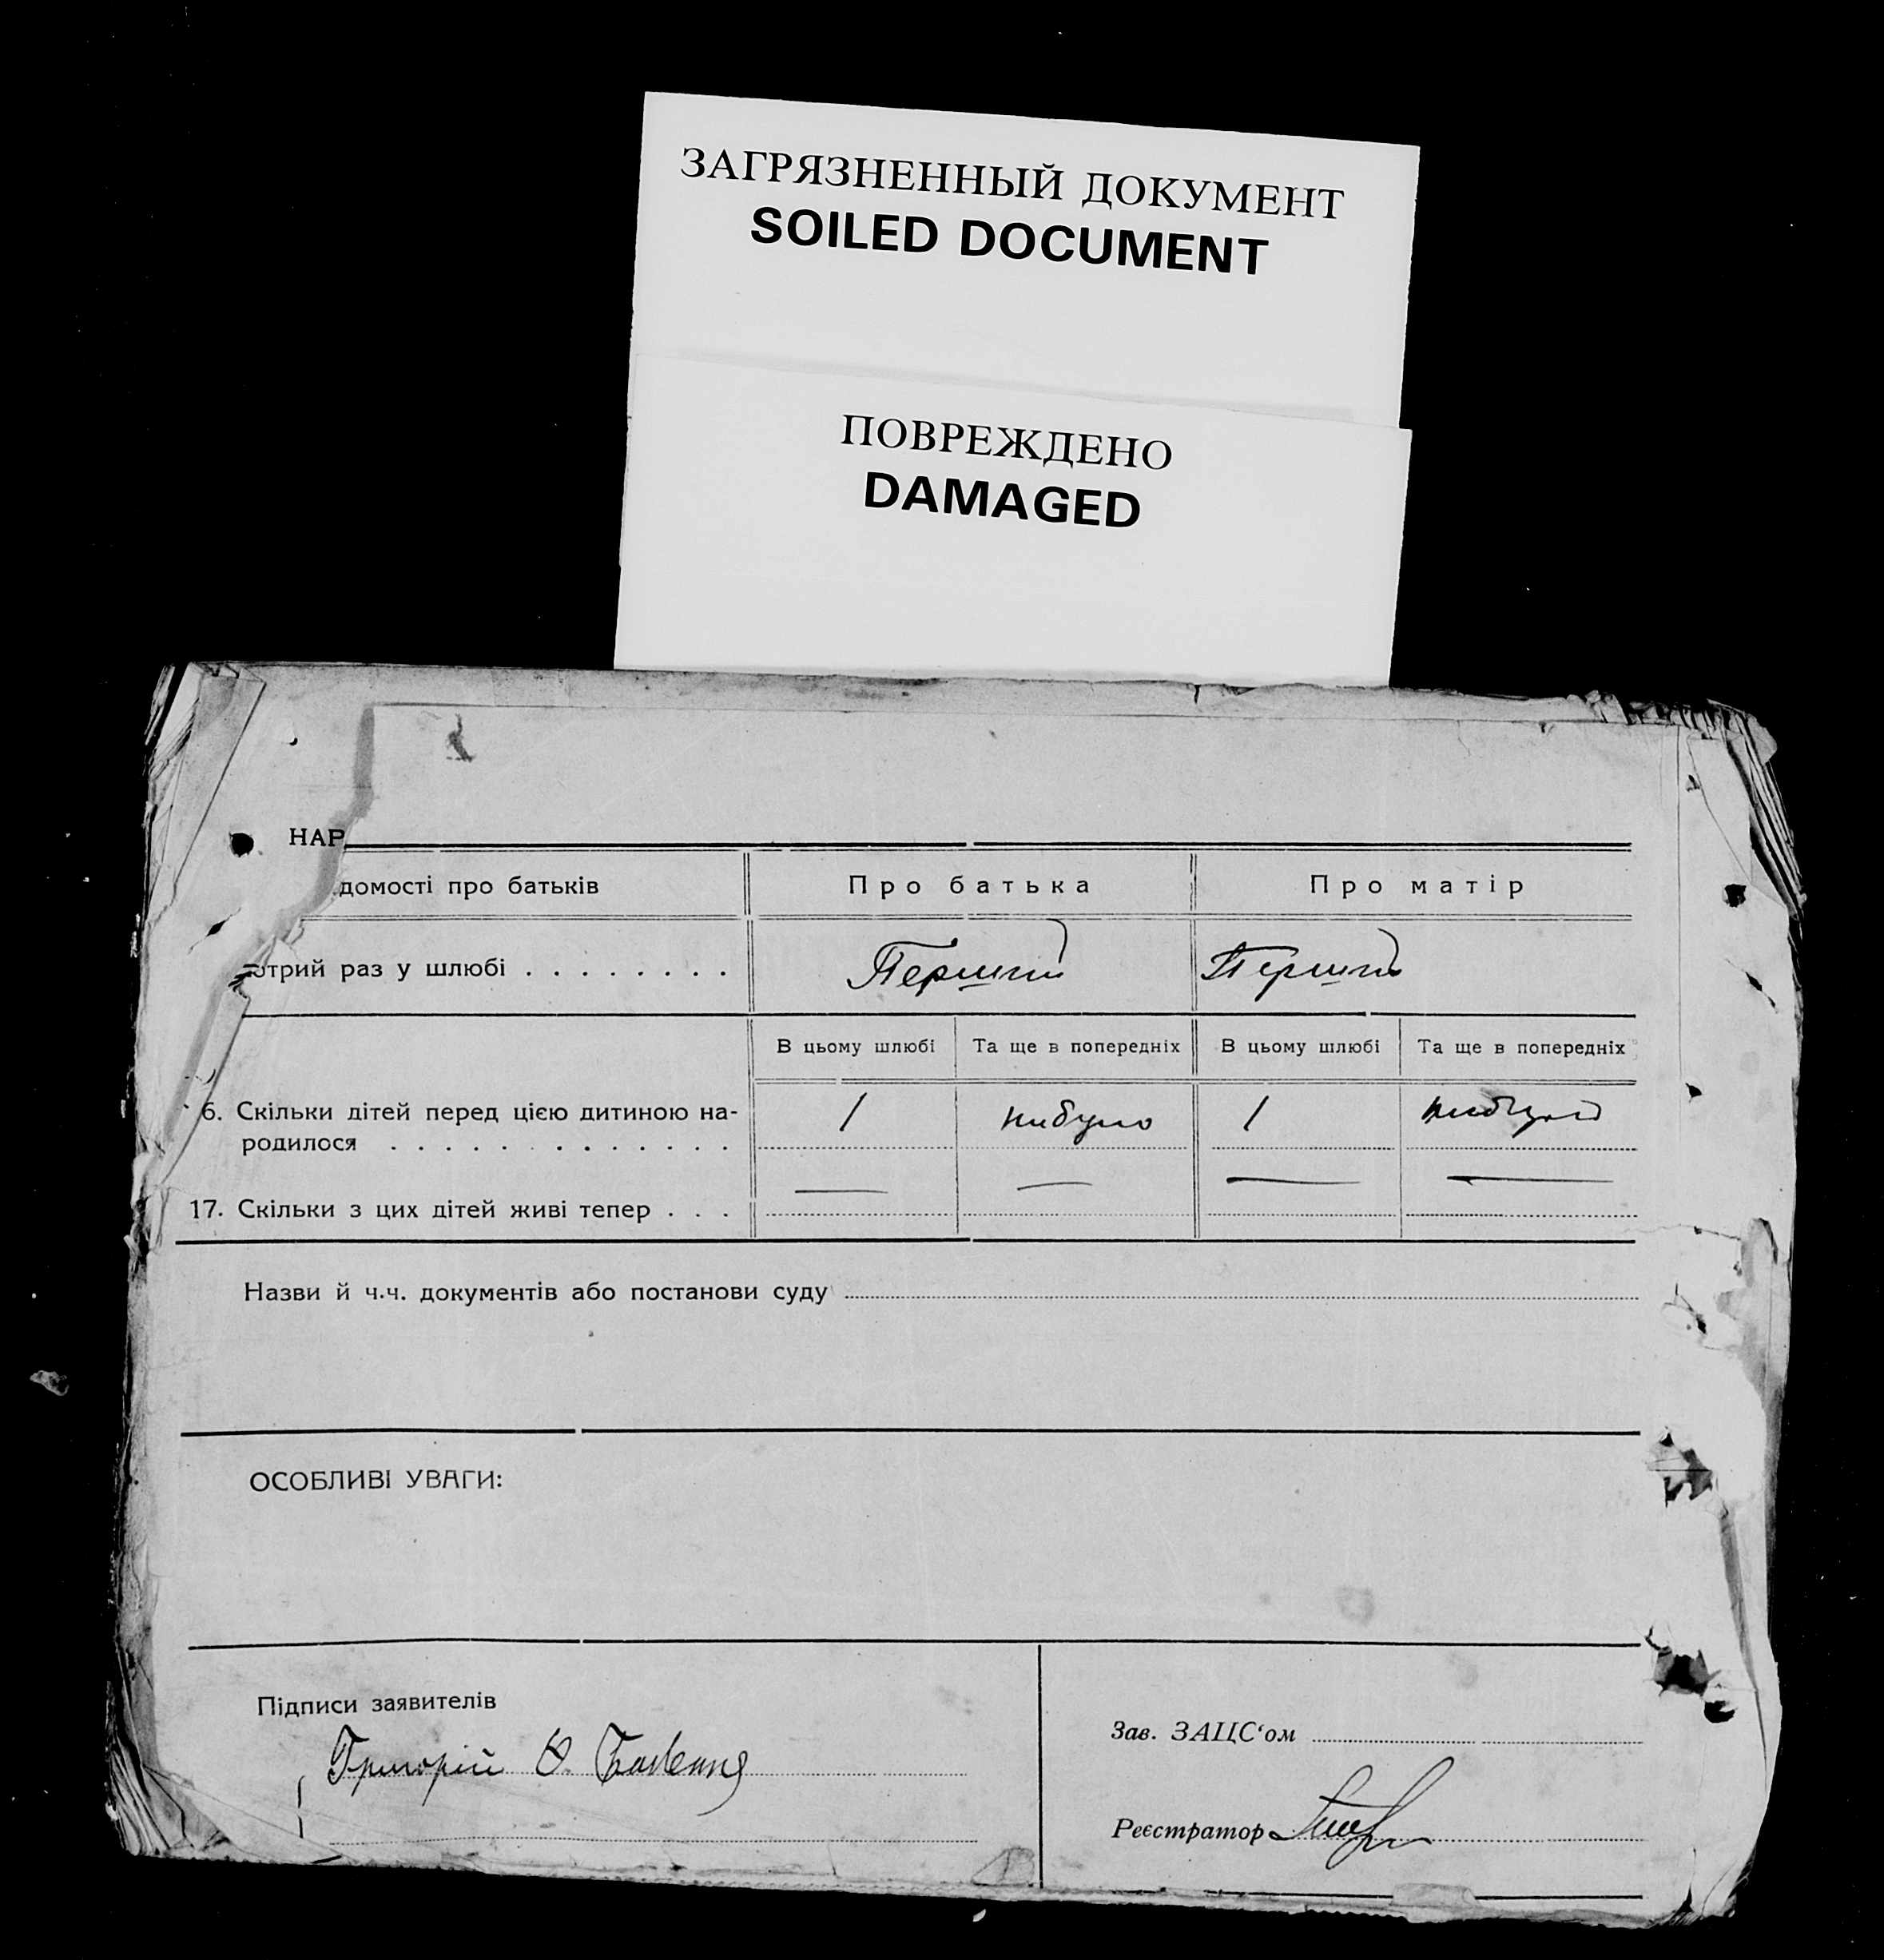 ЗАГРЯЗНЕННЫЙ ДОКУМЕНТ
SOILED DOCUMENT
ПОВРЕЖДЕНО
DAMAGED
НАР
домості про батьків Про батька Про матір
отрий раз у шлюбі . . . . . . . . Перший Перший
В цьому шлюбі Та ще в попередніх В цьому шлюбі Та ще в попередніх
6. Скільки дітей перед цією дитиною на- 1 нибуло 1 нибуло
родилося . . . . . . . . . . . . .
17. Скільки з цих дітей живі тепер . . . — — — —
Назви й ч.ч. документів або постанови суду
ОСОБЛИВІ УВАГИ:
Підписи заявителів
Григорій
Зав. ЗАЦС‘ом
Реєстратор